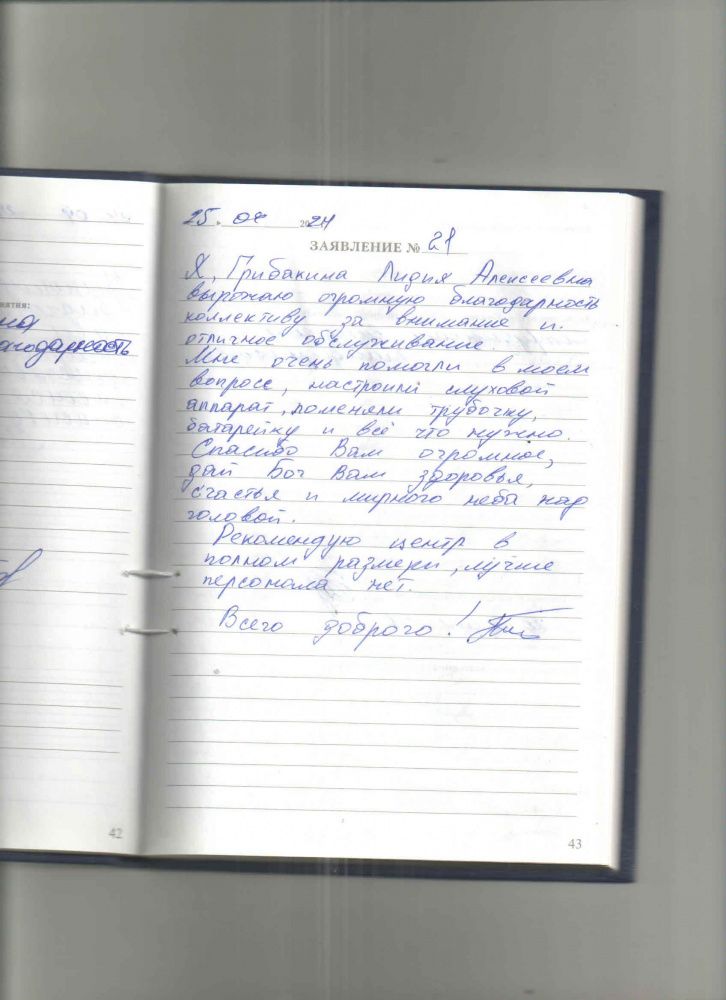 25. 08 2024
ЗАЯВЛЕНИЕ № 21
Я, Грибакина Лидия Алексеевна
выражаю огромную благодарность
коллективу за внимание и
отличное обслуживание.
Мне очень помогли в моем
вопросе, настроили слуховой
аппарат, поменяли трубочку,
батарейку и всё что нужно.
Спасибо Вам огромное,
дай Бог Вам здоровья,
счастья и мирного неба над
головой.
Рекомендую центр в
полном размери, лучше
персонала нет.
Всего доброго!
43
нятия:
агодарность
42